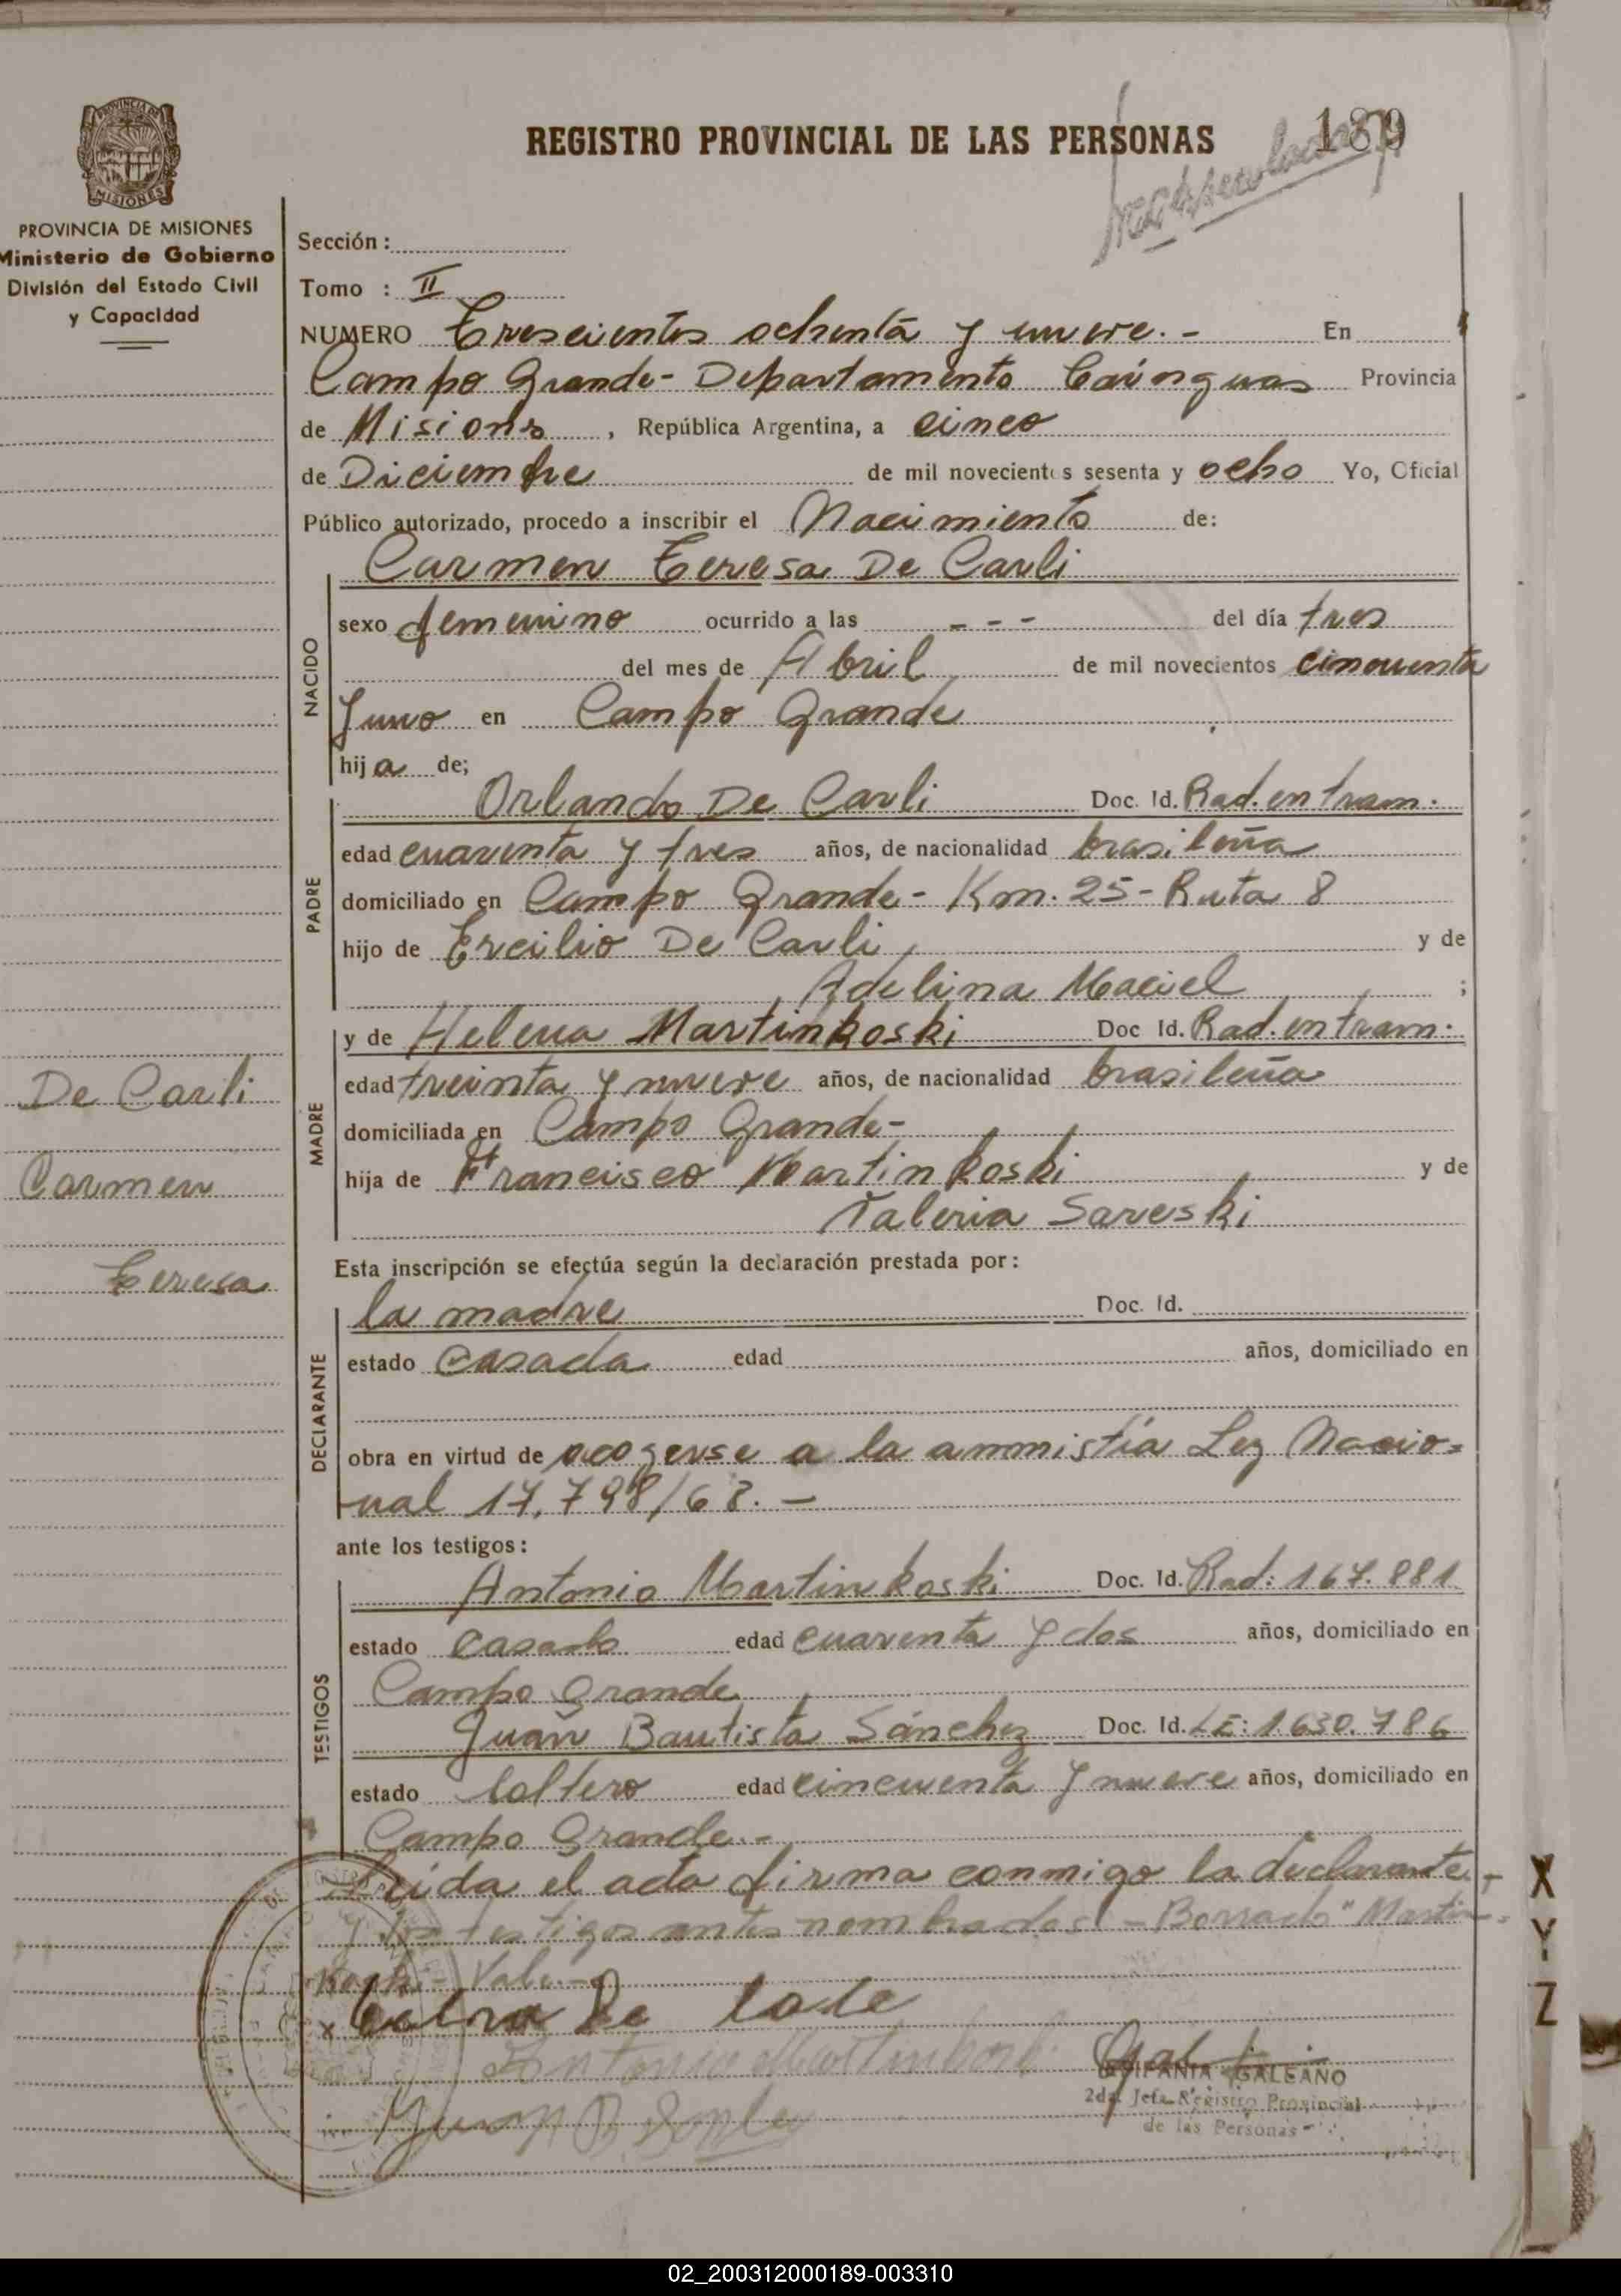 REGISTRO PROVINCIAL DE LAS PERSONAS
189
Matriculado
PROVINCIA DE
MISIONES
PROVINCIA DE MISIONES
Ministerio de Gobierno
División del Estado Civil
y Capacidad
Sección:
Tomo : II
NUMERO Trescientos ochenta y nueve.- En
Campo Grande- Departamento Cainguas Provincia
de Misiones, República Argentina, a cinco
de Diciembre de mil novecientos sesenta y ocho Yo, Oficial
Público autorizado, procedo a inscribir el Nacimiento de:
Carmen Teresa De Carli
NACIDO
sexo femenino ocurrido a las - - - del día tres
del mes de Abril de mil novecientos cincuenta
y uno en Campo Grande
hija de;
PADRE
Orlando De Carli Doc. Id. Rad. en tram.
edad cuarenta y tres años, de nacionalidad brasileña
domiciliado en Campo Grande- Km. 25- Ruta 8
hijo de Ercilio De Carli y de
Adelina Maciel ;
MADRE
y de Helena Martinkoski Doc Id. Rad. en tram.
edad treinta y nueve años, de nacionalidad brasileña
domiciliada en Campo Grande-
hija de Francisco Martinkoski y de
Valeria Sareski
De Carli
Carmen
Teresa
Esta inscripción se efectúa según la declaración prestada por:
DECLARANTE
la madre Doc. Id.
estado casada edad años, domiciliado en
obra en virtud de acogerse a la ammistía Ley Nacio-
nal 17.798/68.-
ante los testigos:
TESTIGOS
Antonio Martinkoski Doc. Id. Rad: 167.881
estado casado edad cuarenta y dos años, domiciliado en
Campo Grande
Juan Bautista Sánchez Doc. Id. LE: 1.630.786
estado soltero edad cincuenta y nueve años, domiciliado en
Campo Grande.-
Leida el acta firma conmigo la declarante
y los testigos antes nombrados.- Borrado "Martin-
koski- Vale.-
x De
Antonio Martinkoski
Juan B
EPIFANIA GALEANO
2da. Jefa Registro Provincial
de las Personas
X
Y
Z
02_200312000189-003310